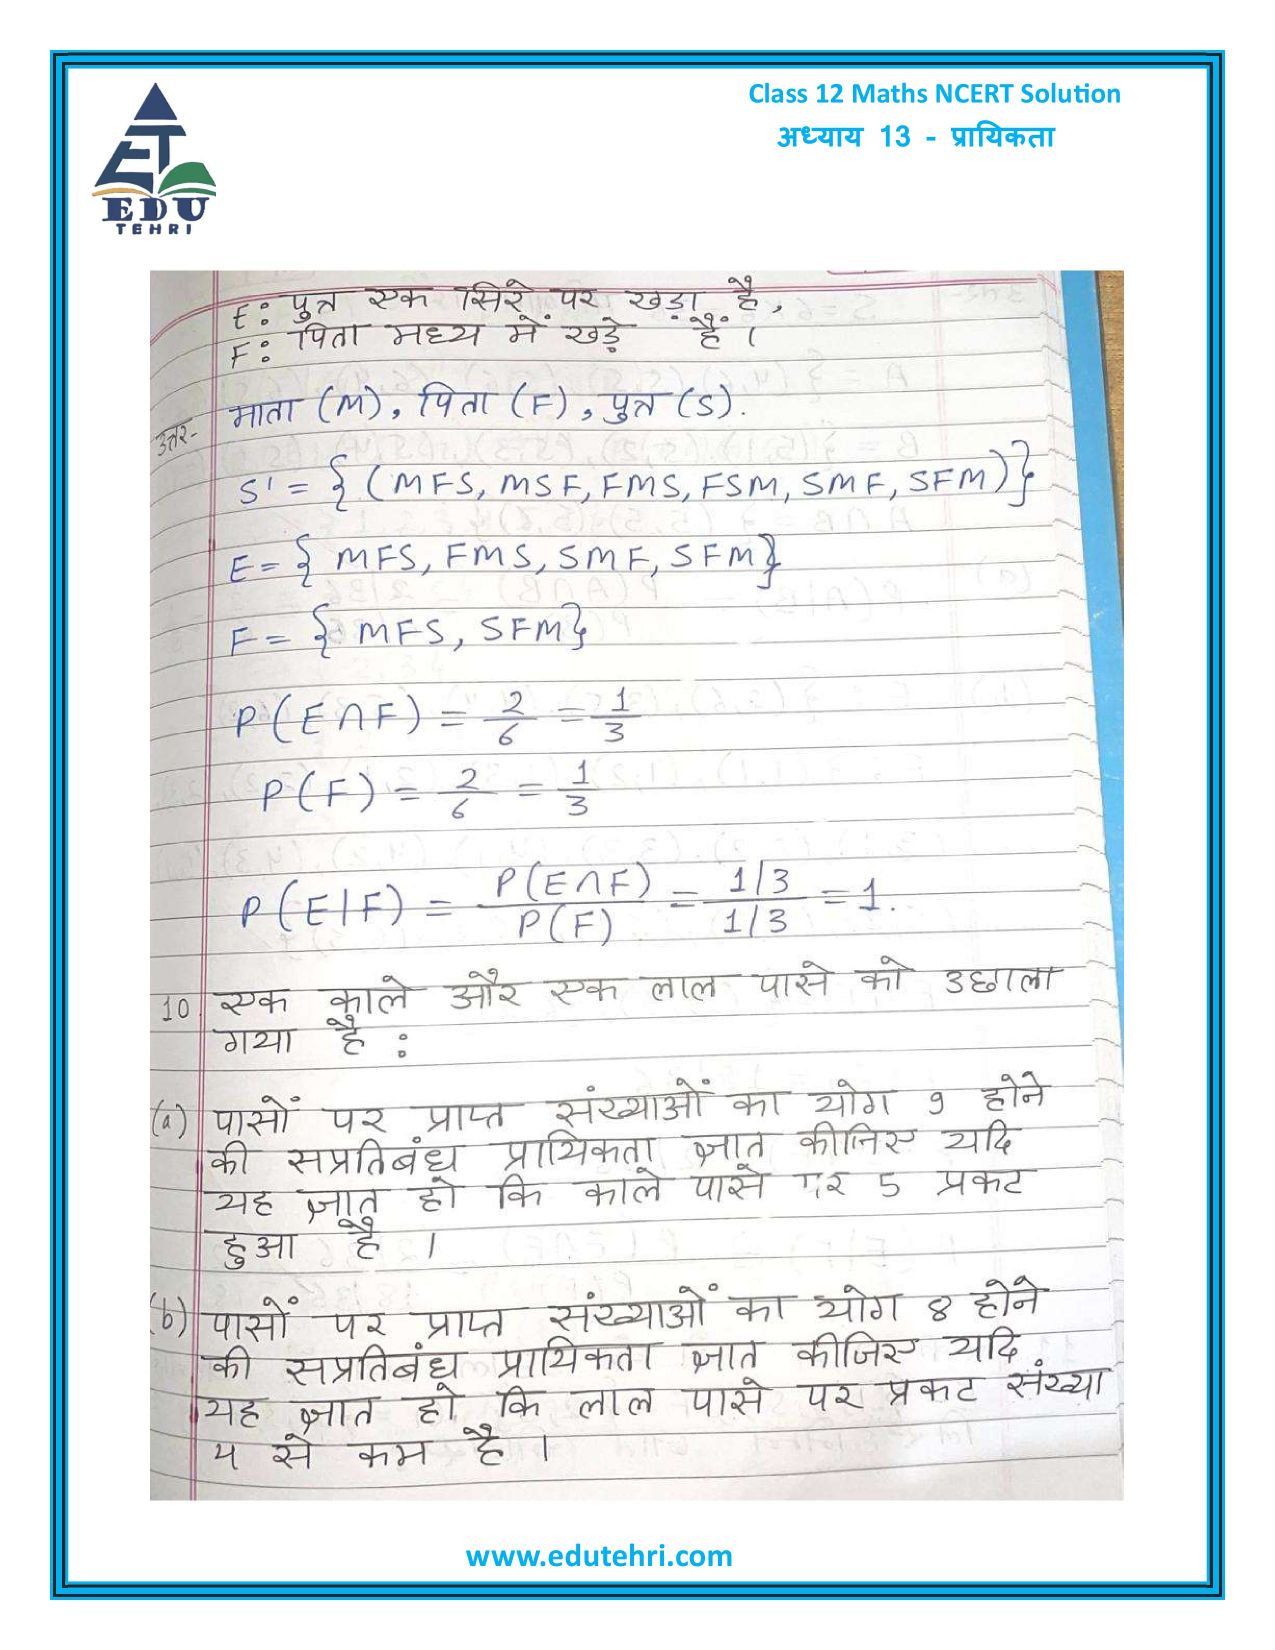 Class 12 Maths NCERT Solution
अध्याय 13 - प्रायिकता
EDU
TEHRI
E: पुत्र एक सिरे पर खड़ा है,
F: पिता मध्य में खड़े हैं ।
उत्तर- माता (M), पिता (F), पुत्र (S).
S' = { (MFS, MSF, FMS, FSM, SMF, SFM)}
E = { MFS, FMS, SMF, SFM}
F = { MFS, SFM}
P(E∩F) = 2/6 = 1/3
P(F) = 2/6 = 1/3
P(E|F) = P(E∩F)/P(F) = 1/3 / 1/3 = 1.
10. एक काले और एक लाल पासे को उछाला
गया है :
(a) पासों पर प्राप्त संख्याओं का योग 9 होने
की सप्रतिबंध प्रायिकता ज्ञात कीजिए यदि
यह ज्ञात हो कि काले पासे पर 5 प्रकट
हुआ है ।
(b) पासों पर प्राप्त संख्याओं का योग 8 होने
की सप्रतिबंध प्रायिकता ज्ञात कीजिए यदि
यह ज्ञात हो कि लाल पासे पर प्रकट संख्या
4 से कम है ।
www.edutehri.com